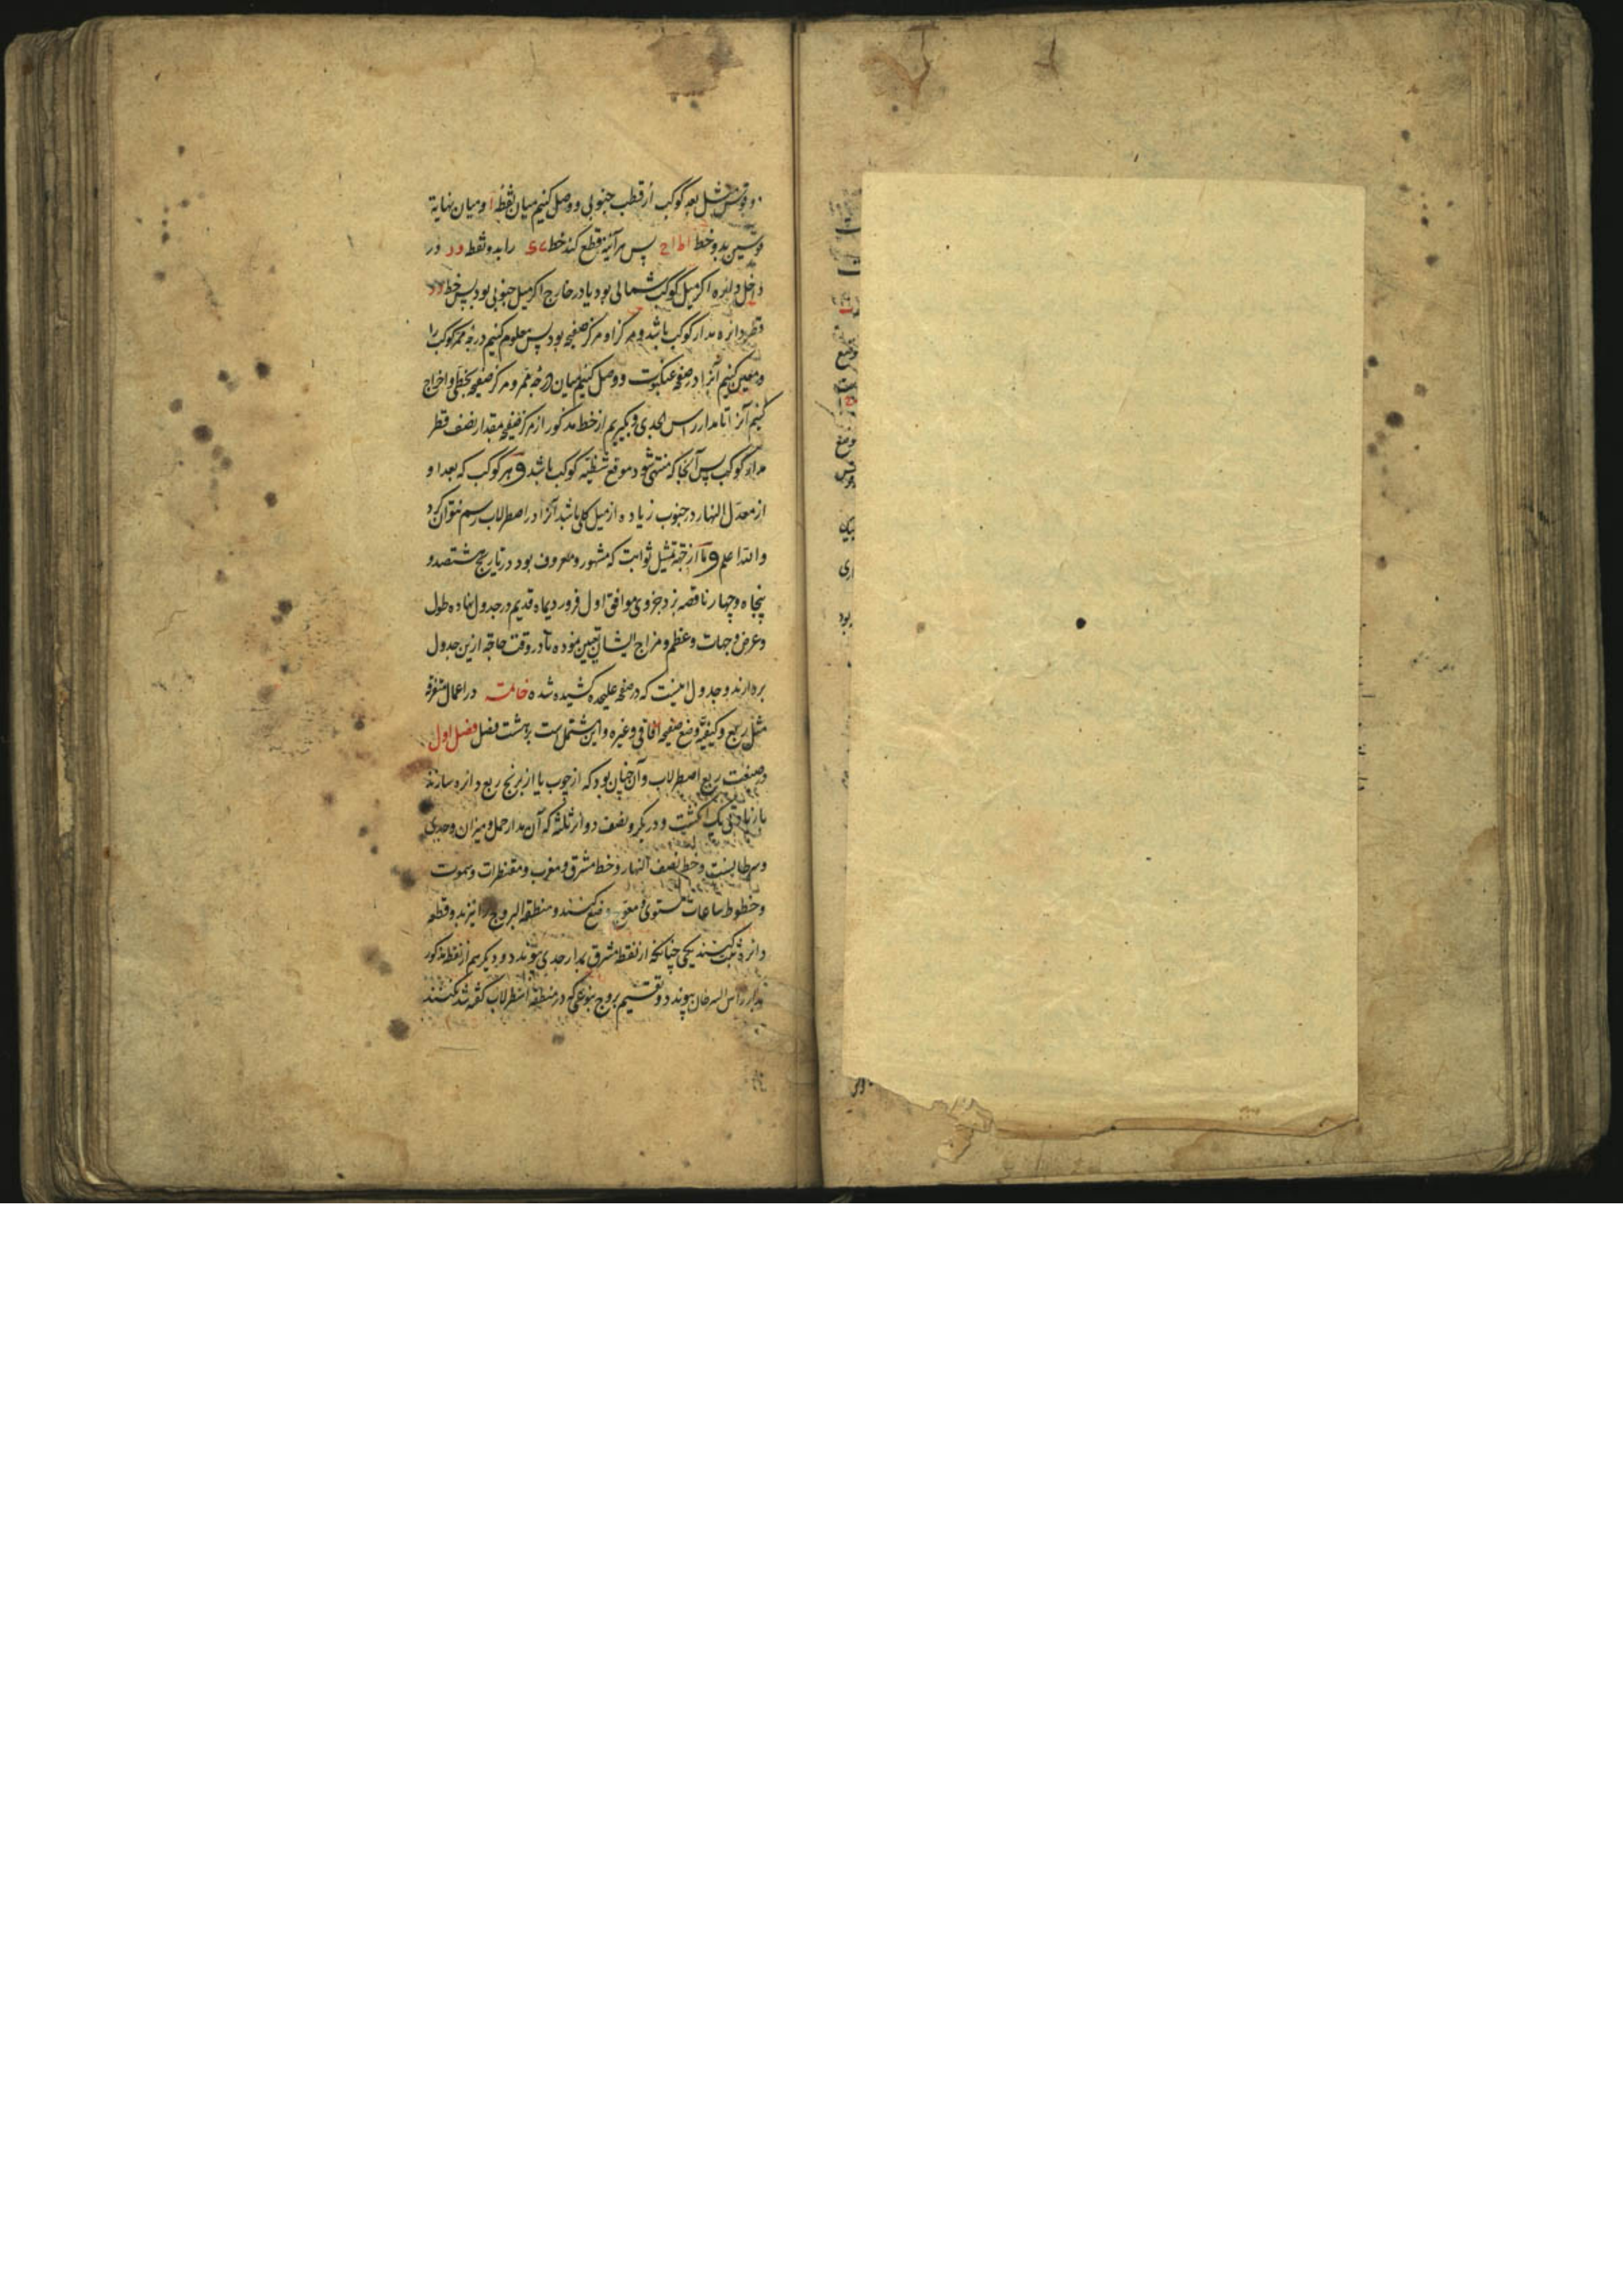 و قوس مثل بعد کوکب از قطب جنوبی و وصل کنیم میان نقطه ا و میان نهایة
قوسین بدو خط اط اح پس هرآینه قطع کند خط را بدو نقطه در
داخل دایره اکر میل کوکب شمالی بود یا در خارج اکر میل جنوبی بود پس خط
قطر دایره مدار کوکب باشد و مرکز او مرکز صفیحه بود پس معلوم کنیم درجه ممر کوکب را
و معین کنیم آنرا در صفحه عنکبوت و وصل کنیم میان درجه ممر و مرکز صفیحه بخطی و اخراج
کنیم آنرا تا مدار راس الجدی و بکیریم از خط مذکور از مرکز صفیحه مقدار نصف قطر
مدار کوکب پس آنجا که منتهی شود موقع شظیه کوکب باشد و هر کوکب که بعد او
از معدل النهار در جنوب زیاده از میل کلی باشد آنرا در اصطرلاب رسم نتوان کرد
والله اعلم و ما از جهة تمثیل ثوابت که مشهور و معروف بود در تاریخ هشتصد و
پنجاه و چهار ناقصه یزدجردی موافق اول فروردیماه قدیم در جدول نهاده طول
و عرض و جهات و عظم و مزاج ایشان تعیین نموده تا در وقت حاجه ازین جدول
بردارند و جدول اینست که در صفحه علیحده کشیده شده خاتمت در اعمال متفرقه
مثل ربع و کیفیة وضع صفیحه آفاقی و غیره و این مشتمل است بر هشت فصل فصل اول
در صنعت ربع اصطرلاب و آن چنان بود که از چوب یا از برنج ربع دایره سازند
با زیادتی یک انکشت و در یکرو نصف دوایر ثلثه که آن مدار حمل و میزان و جدی
و سرطانست و خط نصف النهار و خط مشرق و مغرب و مقنطرات و سموت
و خطوط ساعات مستوی و معوج وضع کنند و منطقة البروج را نیز بدو قطعه
دایره ثبت کنند یکی چنانکه از نقطه مشرق بمدار جدی پیوندد و دیکر هم از نقطه مذکور
بمدار راس السرطان پیوندد و تقسیم بروج بنوعی که در منطقه اصطرلاب کفته شد کنند